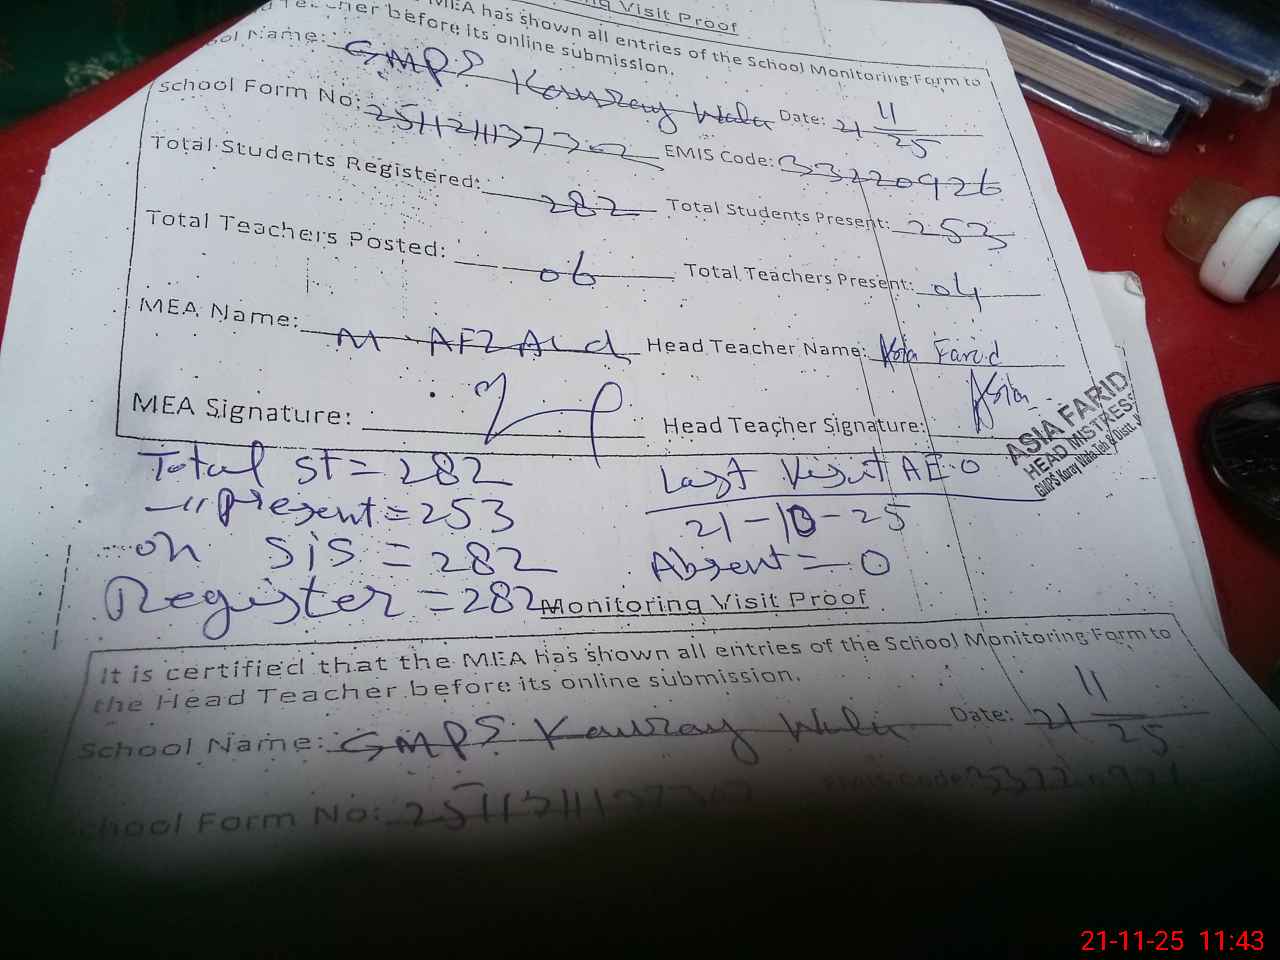 ng Visit Proof
MEA has shown all entries of the School Monitoring Form to
her before its online submission.
ool Name: GMPS Kouray Wala Date: 21 11/25
School Form No: EMIS Code: 33220926
Total Students Registered: 282 Total Students Present: 253
Total Teachers Posted: 06 Total Teachers Present: 04
MEA Name: M AFZAL Head Teacher Name: Asia Farid
MEA Signature: Head Teacher Signature: Asia
ASIA FARID
HEAD MISTRESS
GMPS Koray Wala Teh & Distt.
Total ST = 282 Last Visit AEO
-11 present = 253 21-10-25
on SIS = 282 Absent = 0
Register = 282
Monitoring Visit Proof
It is certified that the MEA has shown all entries of the School Monitoring Form to
the Head Teacher before its online submission.
School Name: GMPS Kouray Wala Date: 21 11/25
chool Form No: EMIS Code:
21-11-25 11:43